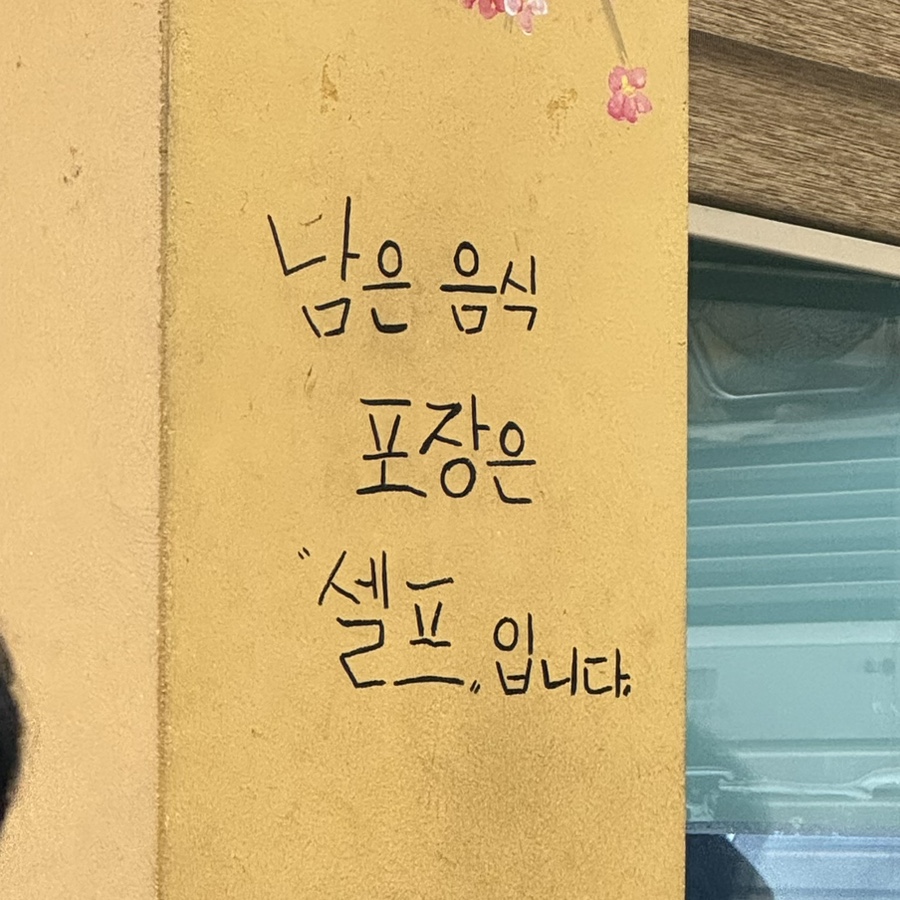 남은 음식
포장은
"셀프" 입니다.